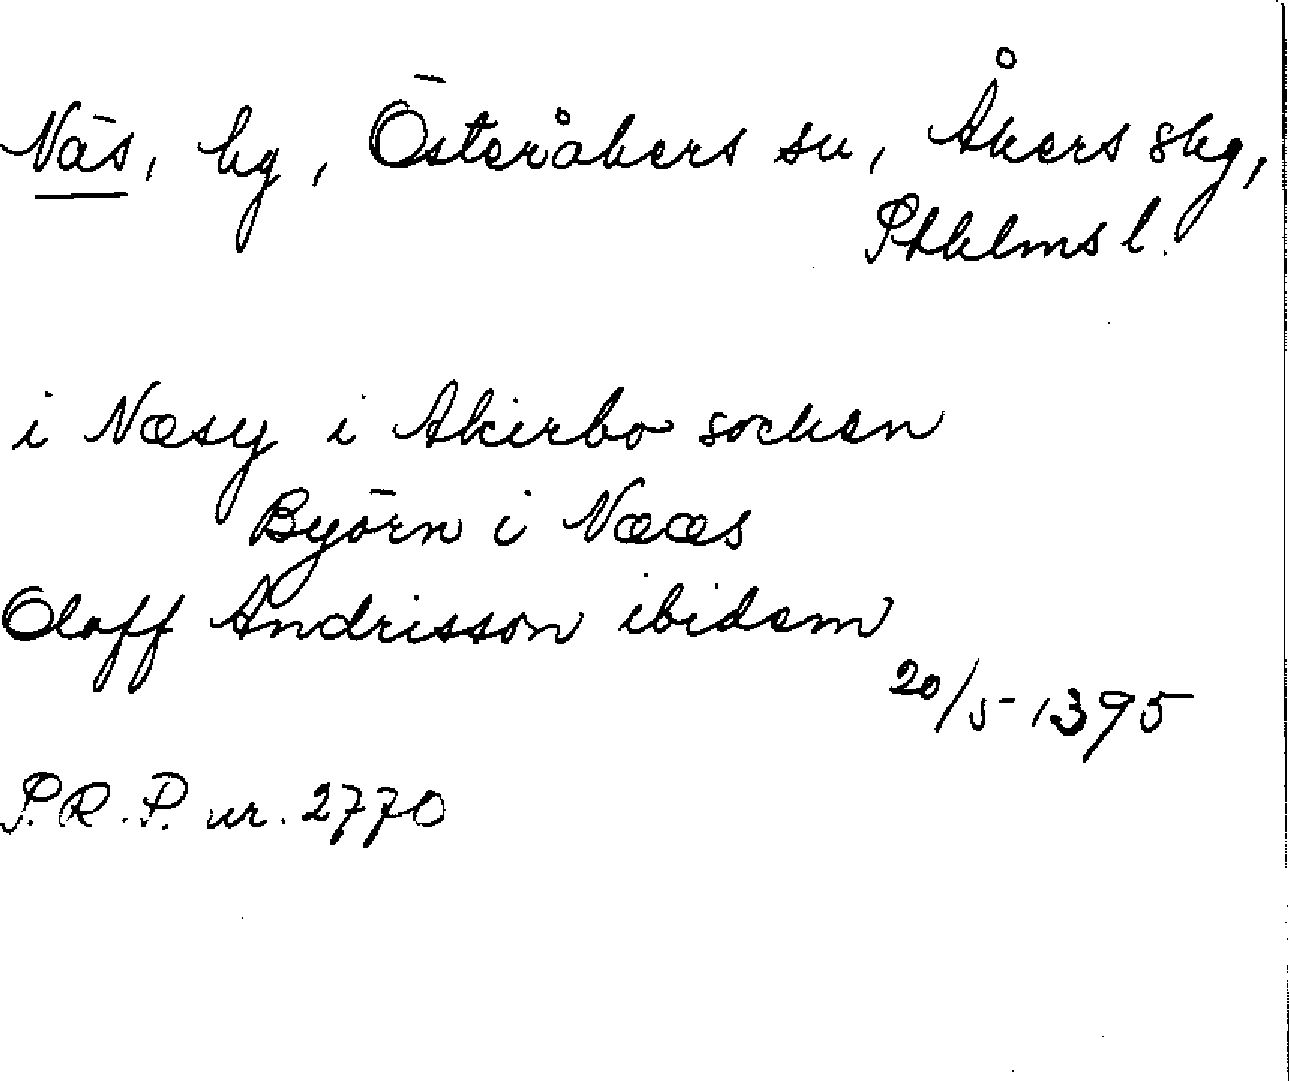 Näs, by, Österåkers sn, Åkers skg,
Sthlms l.
i Næsy i Akirbo socken
Byörn i Nææs
Oloff Andrisson ibidem
20/5 1395
S.R.P. nr. 2770